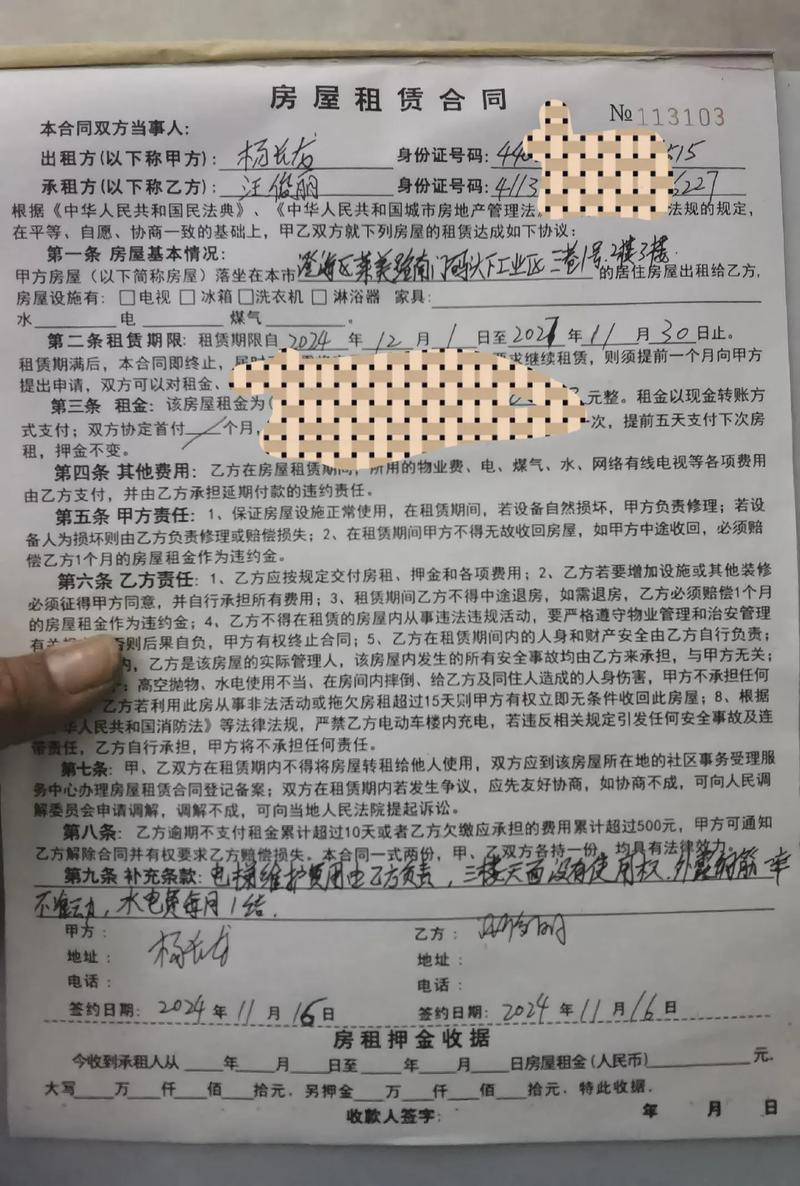 房屋租赁合同
№113103
本合同双方当事人:
出租方(以下称甲方): 杨长龙 身份证号码: 440 515
承租方(以下称乙方): 汪俊丽 身份证号码: 4113 6227
根据《中华人民共和国民法典》、《中华人民共和国城市房地产管理法 法规的规定,
在平等、自愿、协商一致的基础上,甲乙双方就下列房屋的租赁达成如下协议:
第一条 房屋基本情况:
甲方房屋(以下简称房屋)落坐在本市澄海区莱美路南门码头下工业区三巷1号.2楼3楼.的居住房屋出租给乙方,
房屋设施有: □电视 □冰箱 □洗衣机 □淋浴器 家具:
水 电 煤气 。
第二条租赁期限: 租赁期限自2024年12月1日至202 年11月30日止。
租赁期满后,本合同即终止,届时 要求继续租赁,则须提前一个月向甲方
提出申请,双方可以对租金、
第三条 租金: 该房屋租金为( 元整。租金以现金转账方
式支付;双方协定首付 个月, 一次,提前五天支付下次房
租,押金不变。
第四条 其他费用: 乙方在房屋租赁期间,所用的物业费、电、煤气、水、网络有线电视等各项费用
由乙方支付,并由乙方承担延期付款的违约责任。
第五条 甲方责任: 1、保证房屋设施正常使用,在租赁期间,若设备自然损坏,甲方负责修理;若设
备人为损坏则由乙方负责修理或赔偿损失;2、在租赁期间甲方不得无故收回房屋,如甲方中途收回,必须赔
偿乙方1个月的房屋租金作为违约金。
第六条 乙方责任: 1、乙方应按规定交付房租、押金和各项费用;2、乙方若要增加设施或其他装修
必须征得甲方同意,并自行承担所有费用;3、租赁期间乙方不得中途退房,如需退房,乙方必须赔偿1个月
的房屋租金作为违约金;4、乙方不得在租赁的房屋内从事违法违规活动,要严格遵守物业管理和治安管理
有关 否则后果自负,甲方有权终止合同;5、乙方在租赁期间内的人身和财产安全由乙方自行负责;
内,乙方是该房屋的实际管理人,该房屋内发生的所有安全事故均由乙方来承担,与甲方无关;
高空抛物、水电使用不当、在房间内摔倒、给乙方及同住人造成的人身伤害,甲方不承担任何
乙方若利用此房从事非法活动或拖欠房租超过15天则甲方有权立即无条件收回此房屋;8、根据
华人民共和国消防法》等法律法规,严禁乙方电动车楼内充电,若违反相关规定引发任何安全事故及连
带责任,乙方自行承担,甲方将不承担任何责任。
第七条: 甲、乙双方在租赁期内不得将房屋转租给他人使用,双方应到该房屋所在地的社区事务受理服
务中心办理房屋租赁合同登记备案;双方在租赁期内若发生争议,应先友好协商,如协商不成,可向人民调
解委员会申请调解,调解不成,可向当地人民法院提起诉讼。
第八条: 乙方逾期不支付租金累计超过10天或者乙方欠缴应承担的费用累计超过500元,甲方可通知
乙方解除合同并有权要求乙方赔偿损失。本合同一式两份,甲、乙双方各持一份,均具有法律效力。
第九条 补充条款: 电梯维护费用由乙方负责,三楼天面没有使用权.外露钢筋一率
不准动,水电费每月1结.
甲方: 杨长龙 乙方:
地址: 地址:
电话: 电话:
签约日期: 2024年11月16日 签约日期: 2024年11月16日
房租押金收据
今收到承租人从 年 月 日至 年 月 日房屋租金(人民币) 元.
大写 万 仟 佰 拾元.另押金 万 仟 佰 拾元.特此收据.
收款人签字: 年 月 日